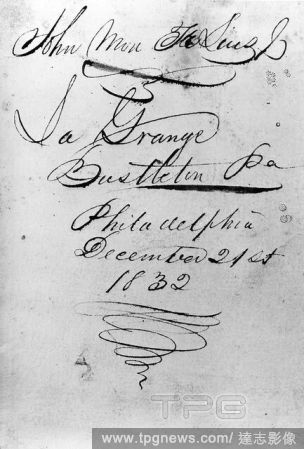 John Mon
La Grange
Bustleton Pa
Philadelphia
December 21st
1832
TPG
www.tpgnews.com/達志影像